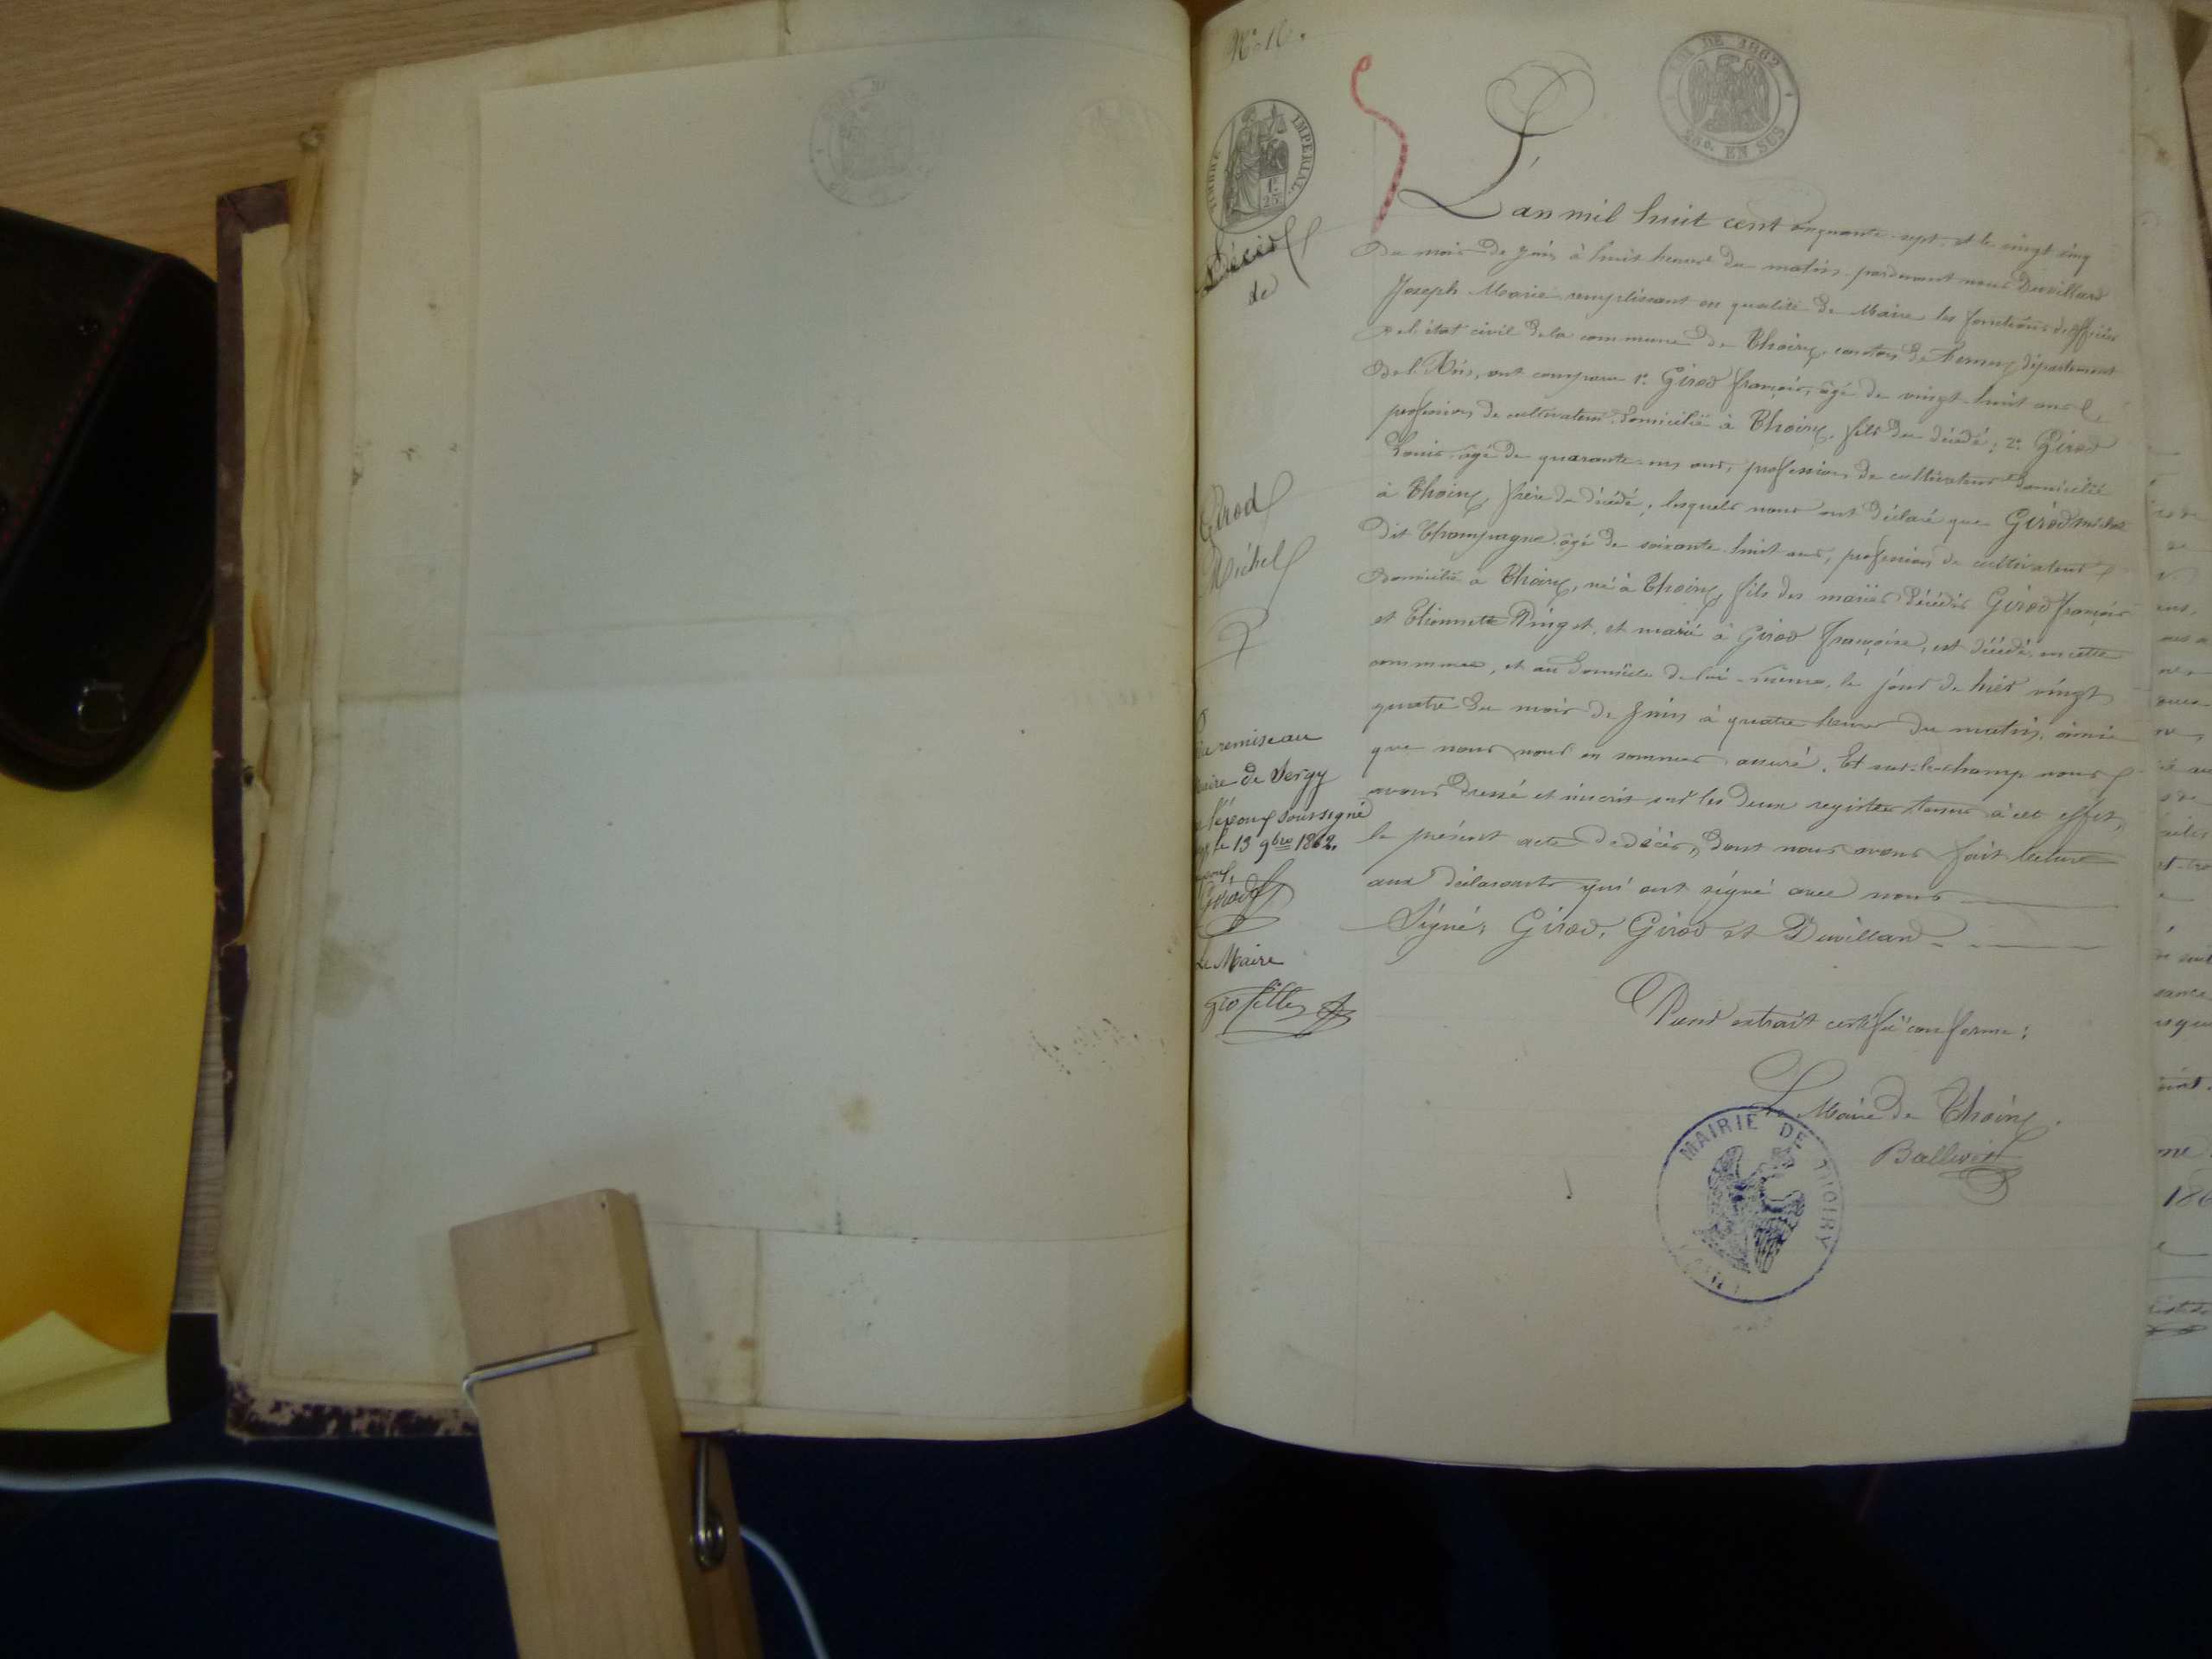 TIMBRE IMPERIAL
1F
25
LOI DE 1862
25c. EN SUS
Décès
de
Girod
Michel
remise au
Maire de Sergy
l'époux soussigné
le 13 9bre 1862.
Girod
Le Maire
L'an mil huit cent cinquante-sept et le vingt cinq
du mois de juin à huit heures du matin pardevant nous Duvillard
Joseph Marie remplissant en qualité de Maire les fonctions d'officier
de l'état civil de la commune de Thoiry, canton de Ferney département
de l'Ain, ont comparu 1° Girod françois, âgé de vingt-huit ans
profession de cultivateur domicilié à Thoiry, fils du décédé; 2° Girod
Louis, âgé de quarante-un ans, profession de cultivateur domicilié
à Thoiry, frère du décédé; lesquels nous ont déclaré que Girod Michel
dit Champagne âgé de soixante-huit ans, profession de cultivateur
domicilié à Thoiry, né à Thoiry, fils des mariés décédés Girod françois
et Etiennette Pinget, et marié à Girod françoise, est décédé en cette
commune, et au domicile de lui-même, le jour de hier vingt
quatre du mois de juin à quatre heures du matin, ainsi
que nous nous en sommes assuré. Et sur-le-champ nous
avons dressé et inscrit sur les deux registres tenus à cet effet,
le présent acte de décès, dont nous avons fait lecture
aux déclarants qui ont signé avec nous
Signé: Girod, Girod et Duvillard
Pour extrait certifié conforme:
Le Maire de Thoiry.
MAIRIE DE THOIRY
(AIN)